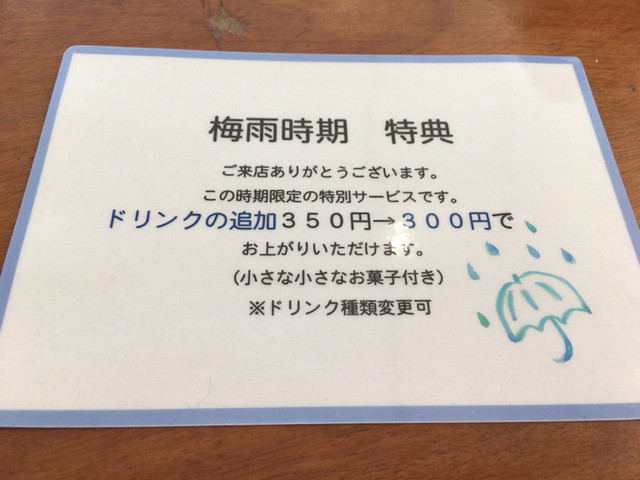 梅雨時期　特典
ご来店ありがとうございます。
この時期限定の特別サービスです。
ドリンクの追加３５０円→３００円で
お上がりいただけます。
（小さな小さなお菓子付き）
※ドリンク種類変更可